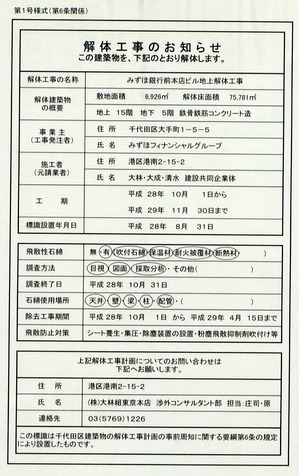 第1号様式(第6条関係)
解体工事のお知らせ
この建築物を、下記のとおり解体します。
解体工事の名称 みずほ銀行前本店ビル地上解体工事
解体建築物の概要 敷地面積 6,926㎡ 解体床面積 75,781㎡
地上 15階 地下 5階 鉄骨鉄筋コンクリート造
事業主(工事発注者) 住所 千代田区大手町1-5-5
氏名 みずほフィナンシャルグループ
施工者(元請業者) 住所 港区港南2-15-2
氏名 大林・大成・清水 建設共同企業体
工期 平成 28年 10月 1日から
平成 29年 11月 30日まで
標識設置年月日 平成 28年 8月 31日
飛散性石綿 無・有(吹付石綿・保温材・耐火被覆材・断熱材 )
調査方法 目視・図面・採取分析・その他( )
調査終了日 平成 28年 10月 31日
石綿使用場所 天井・壁・梁・柱・配管・( )
除去工事期間 平成 28年 10月 1日 から 平成 29年 4月 15日まで
飛散防止対策 シート養生・集圧・除塵装置の設置・粉塵飛散抑制剤吹付け等
上記解体工事計画についてのお問い合わせは
下記へお願いします。
住所 港区港南2-15-2
氏名 (株)大林組東京本店 渉外コンサルタント部 担当:庄司・原
連絡先 03(5769)1226
この標識は千代田区建築物の解体工事計画の事前周知に関する要綱第6条の規定
により設置したものです。